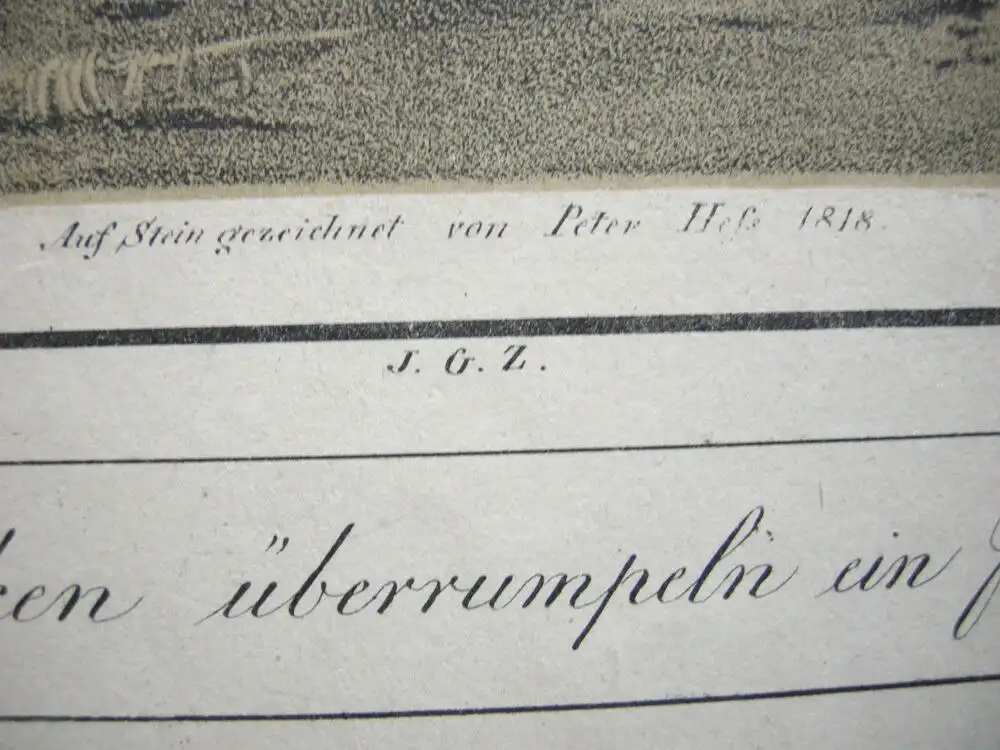 Auf Stein gezeichnet von Peter Heſs 1818.
J. G. Z.
ken überrumpeln ein